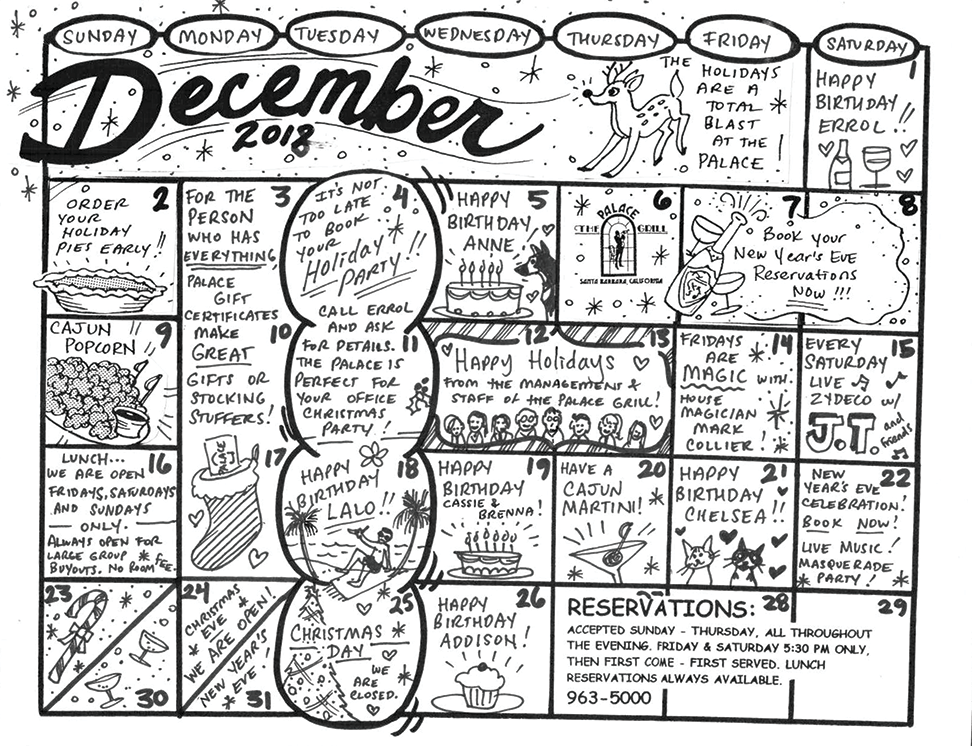 SUNDAY
MONDAY
TUESDAY
WEDNESDAY
THURSDAY
FRIDAY
SATURDAY
December
2018
THE
HOLIDAYS
ARE A
TOTAL
BLAST
AT THE
PALACE!
1
HAPPY
BIRTHDAY
ERROL!!
2
ORDER
YOUR
HOLIDAY
PIES EARLY!!
3
FOR THE
PERSON
WHO HAS
EVERYTHING,
PALACE
GIFT
CERTIFICATES
MAKE
10
GREAT
GIFTS OR
STOCKING
STUFFERS!
4
IT'S NOT
TOO LATE
TO BOOK
YOUR
Holiday
PARTY!!
CALL ERROL
AND ASK
FOR DETAILS.
11
THE PALACE IS
PERFECT FOR
YOUR OFFICE
CHRISTMAS
PARTY!
5
HAPPY
BIRTHDAY,
ANNE!
6
PALACE
THE GRILL
SANTA BARBARA, CALIFORNIA
7
8
Book your
New Year's Eve
Reservations
Now!!!
9
CAJUN
POPCORN!!
12
13
Happy Holidays
FROM THE MANAGEMENT &
STAFF OF THE PALACE GRILL!
14
FRIDAYS
ARE
MAGIC WITH
HOUSE
MAGICIAN
MARK
COLLIER!
15
EVERY
SATURDAY
LIVE
ZYDECO W/
J.T. and
friends
16
LUNCH...
WE ARE OPEN
FRIDAYS, SATURDAYS
AND SUNDAYS
— ONLY. —
ALWAYS OPEN FOR
LARGE GROUP
BUYOUTS. NO ROOM FEE.
17
PALACE
18
HAPPY
BIRTHDAY
LALO!!
19
HAPPY
BIRTHDAY
CASSIE &
BRENNA!
20
HAVE A
CAJUN
MARTINI!
21
HAPPY
BIRTHDAY
CHELSEA!!
22
NEW
YEAR'S EVE
CELEBRATION!
BOOK NOW!
LIVE MUSIC!
MASQUERADE
PARTY!
23
30
24
CHRISTMAS
EVE
WE ARE OPEN!
NEW YEAR'S
EVE!
31
25
CHRISTMAS
DAY
WE
ARE
CLOSED.
26
HAPPY
BIRTHDAY
ADDISON!
28
29
RESERVATIONS:
ACCEPTED SUNDAY - THURSDAY, ALL THROUGHOUT
THE EVENING. FRIDAY & SATURDAY 5:30 PM ONLY,
THEN FIRST COME - FIRST SERVED. LUNCH
RESERVATIONS ALWAYS AVAILABLE.
963-5000